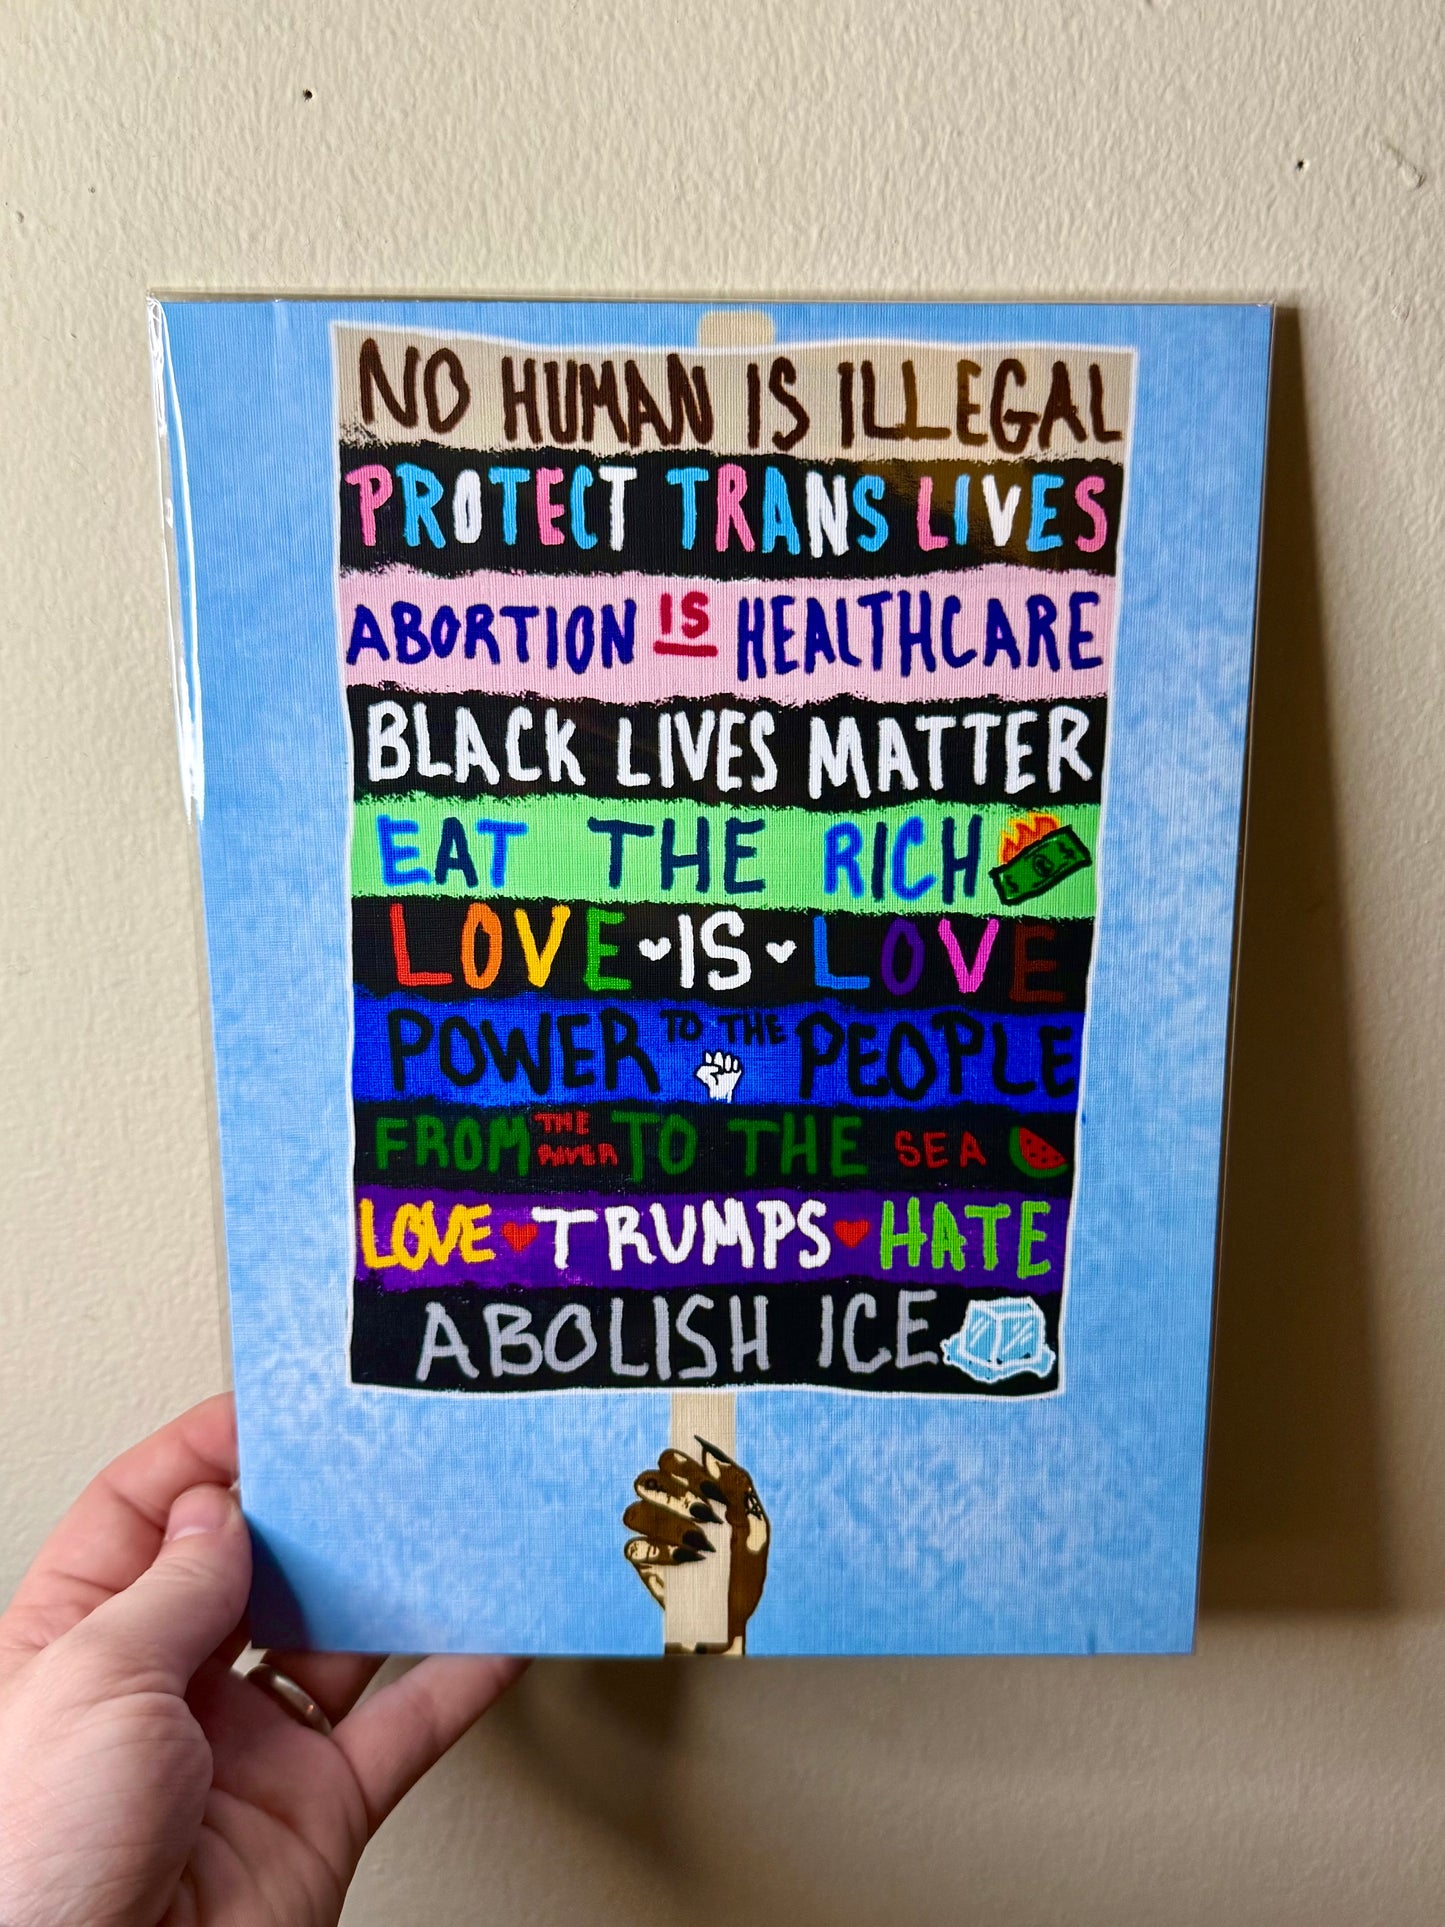 NO HUMAN IS ILLEGAL
PROTECT TRANS LIVES
ABORTION IS HEALTHCARE
BLACK LIVES MATTER
EAT THE RICH
LOVE IS LOVE
POWER TO THE PEOPLE
FROM THE RIVER TO THE SEA
LOVE TRUMPS HATE
ABOLISH ICE